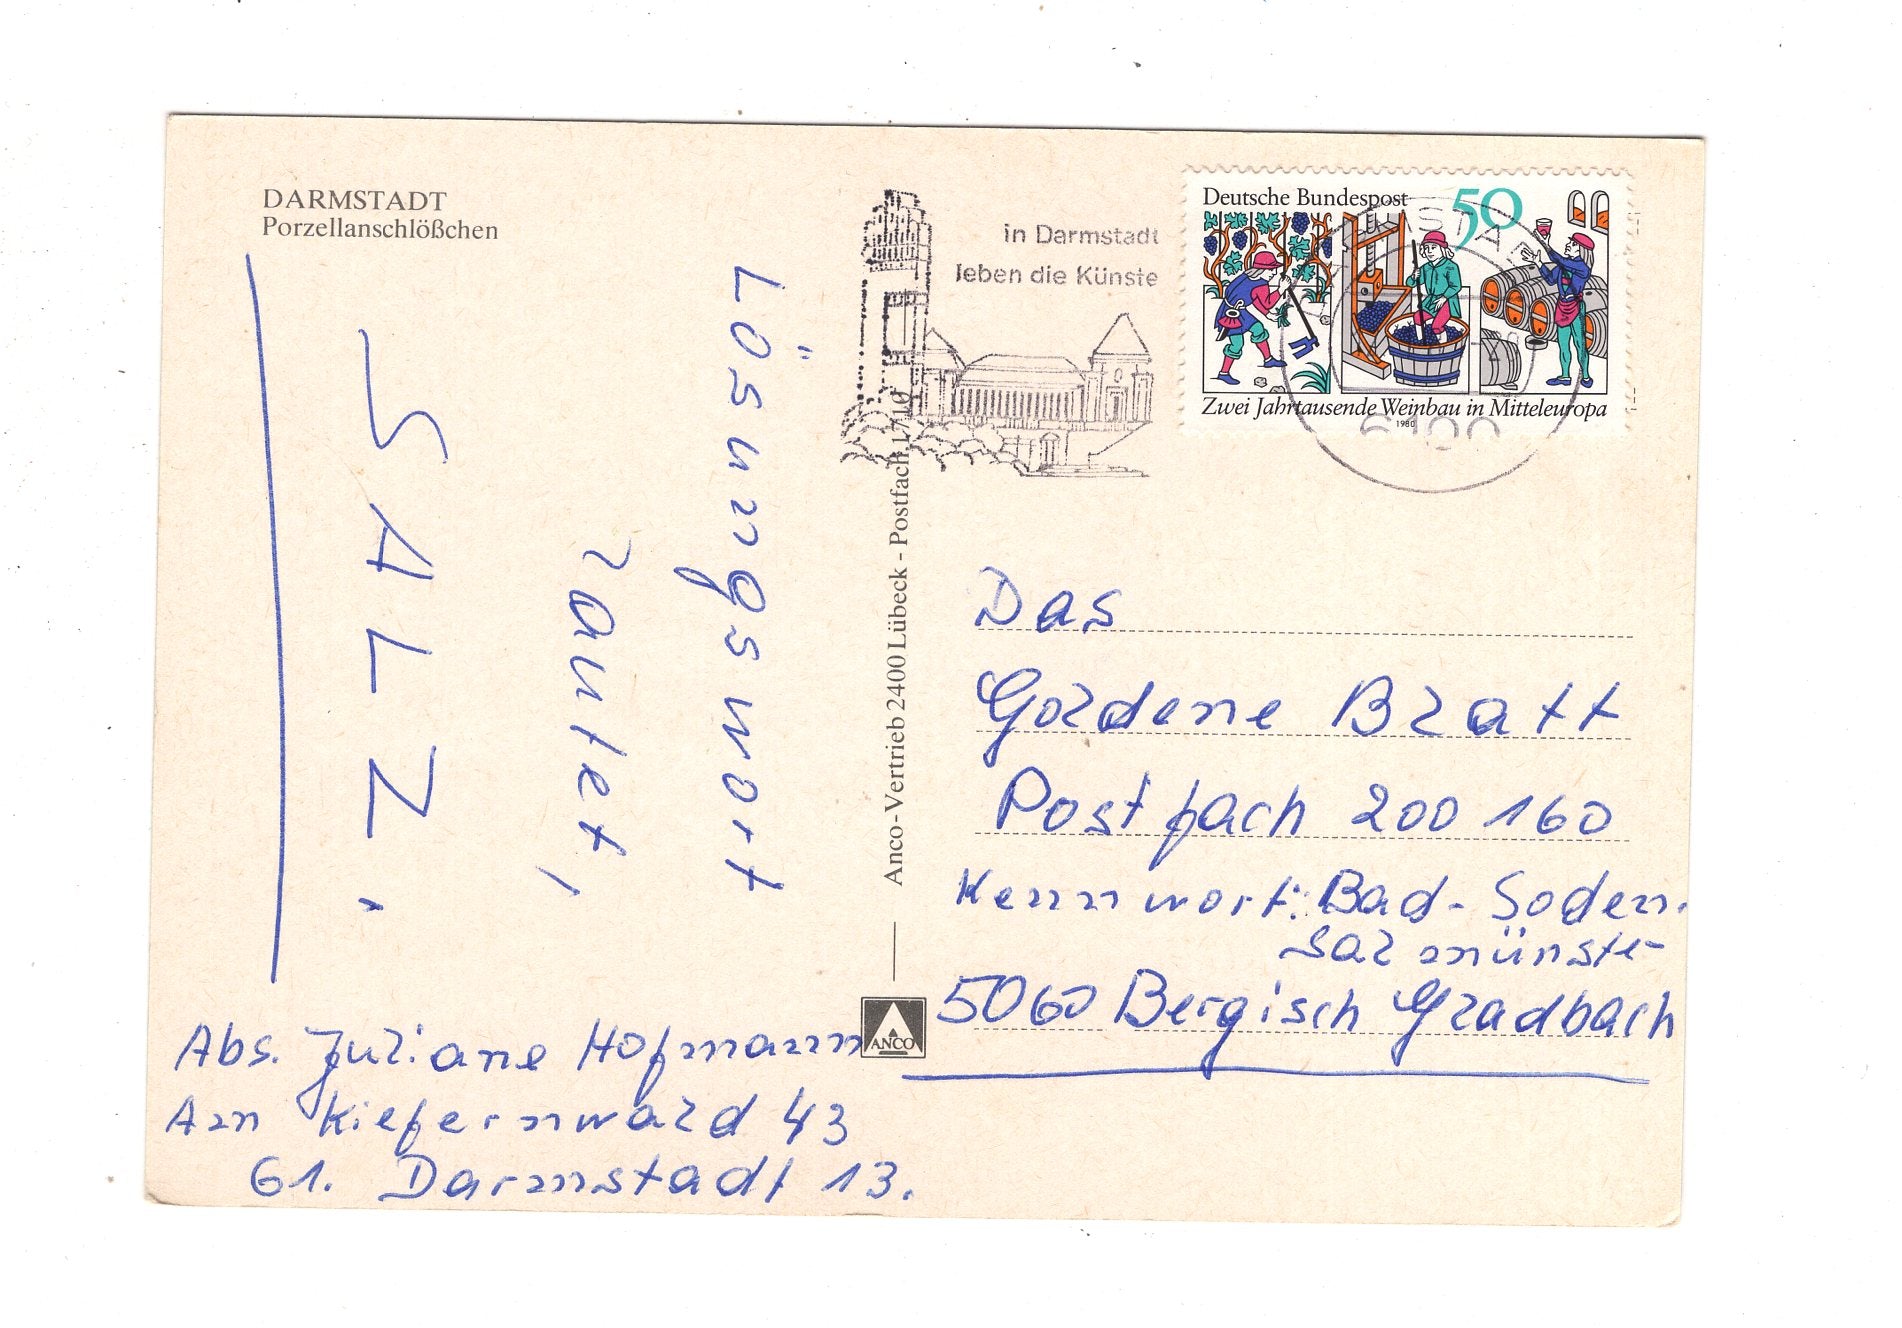 DARMSTADT
Porzellanschlößchen
Lösungswort
lautet,
SALZ.
Abs. Juliane Hofmann
Am Kiefernwald 43
61. Darmstadt 13.
Anco-Vertrieb 2400 Lübeck - Postfach 1710
ANCO
in Darmstadt
leben die Künste
Deutsche Bundespost 50
Zwei Jahrtausende Weinbau in Mitteleuropa
1980
6100
Das
Goldene Blatt
Postfach 200 160
Kennwort: Bad-Soden.
Salmünster
5060 Bergisch Gladbach